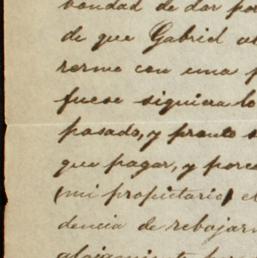 bondad de dar por
de que Gabriel
rerme con una
fuese siquiera lo
pasado, y pronto
que pagar, y porce
(mi propietario)
dencia de rebajar
alojamiento